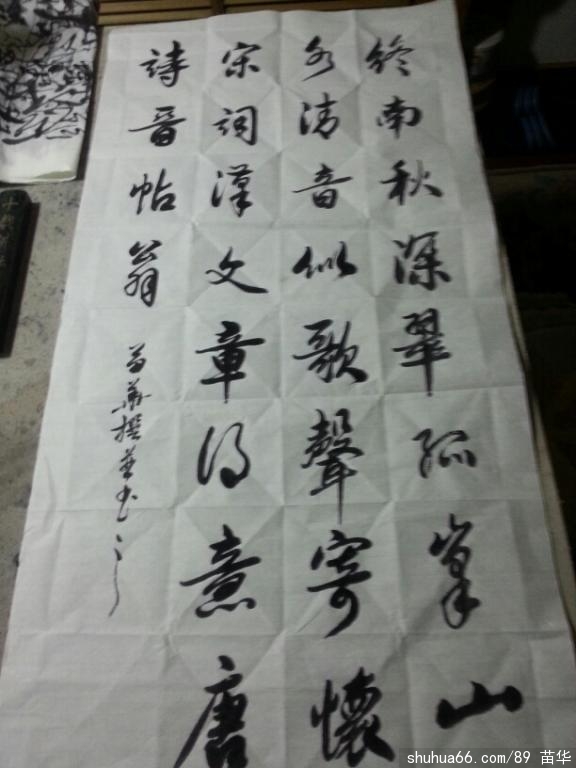 終南秋深翠孤峯山
水清音似歌聲寄懷
宋詞漢文章得意唐
詩晉帖翁
苗華撰並书之
shuhua66.com/89 苗华